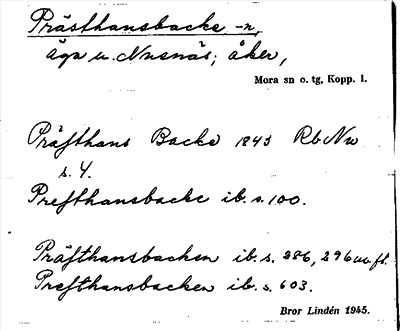 Prästhansbacke -n,
äga u. Nusnäs; åker,
Mora sn o. tg, Kopp. l.
Prästhans Backe 1845 Rb Nu
s. 4.
Presthansbacke ib. s. 100.
Prästhansbacken ib. s. 286, 296 m. fl.
Presthansbacken ib. s. 603.
Bror Lindén 1945.